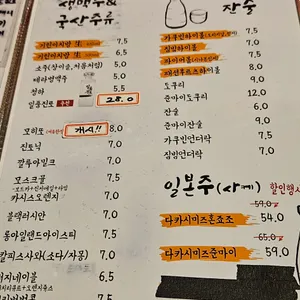 생맥주&
국산주류
기린이치방 7.5
기린이치방 6.5
소주(참이슬, 처음처럼) 5.5
테라병맥주 5.5
청하 5.5
일품진로 28.0
모히또 개시!! 8.0
진토닉 7.0
깔루아밀크 7.0
모스크뮬 7.5
카시스오렌지 7.0
블랙러시안 7.0
롱아일랜드아이스티 7.5
칼피스사와 (소다/자몽) 7.0
6.5
잔술
가쿠빈하이볼 7.5
짐빔하이볼 7.0
7.5
9.0
도쿠리 9.0
준마이도쿠리 12.0
잔술 6.0
준마이잔술 9.0
가쿠빈언더락 7.5
짐빔언더락 7.0
일본주(사케) 할인행사
59.0
다카시미즈혼죠조 54.0
65.0
다카시미즈준마이 59.0